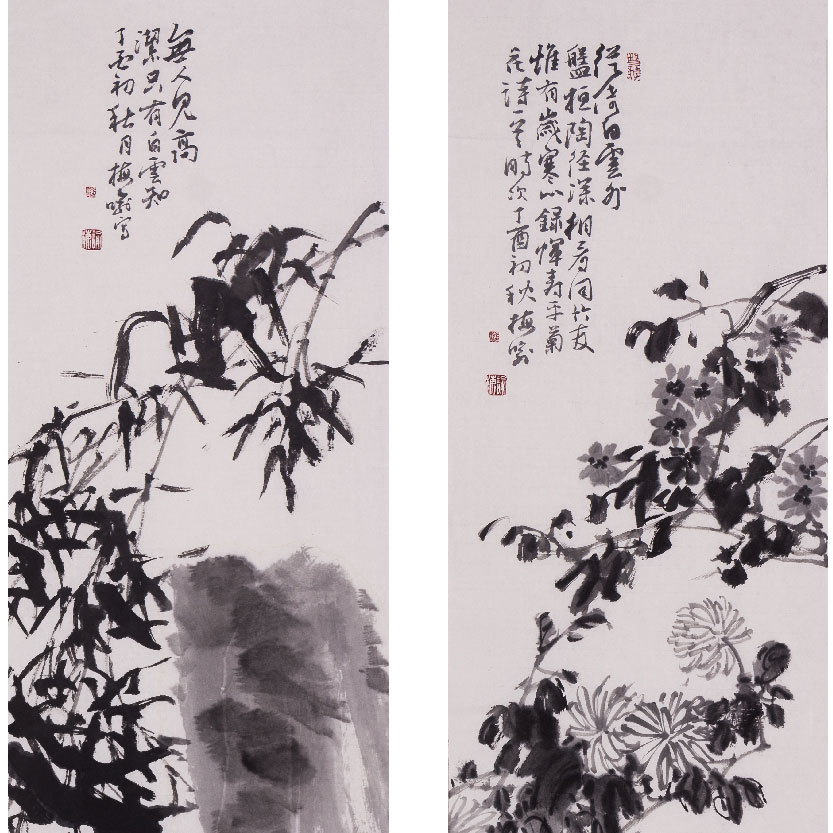 無人見高
潔只有白雲知
丁酉初秋月梅
寫
從倚白雲外
盤桓陶徑深相看同竹友
惟有歲寒心錄惲壽平菊
花詩一首時次丁酉初秋梅